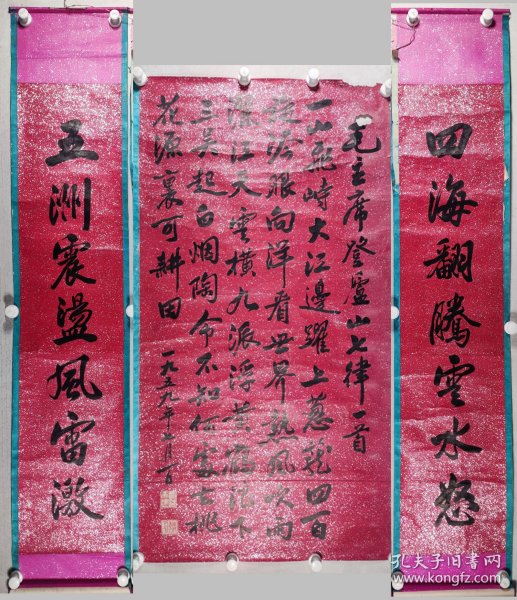 四海翻騰雲水怒
毛主席登廬山七律一首
一山飛峙大江邊躍上葱蘢四百
旋冷眼向洋看世界熱風吹雨
灑江天雲橫九派浮黃鶴浪下
三吳起白烟陶令不知何處去桃
花源裏可耕田 一九五九年七月一日
五洲震盪風雷激
孔夫子旧书网
www.kongfz.com